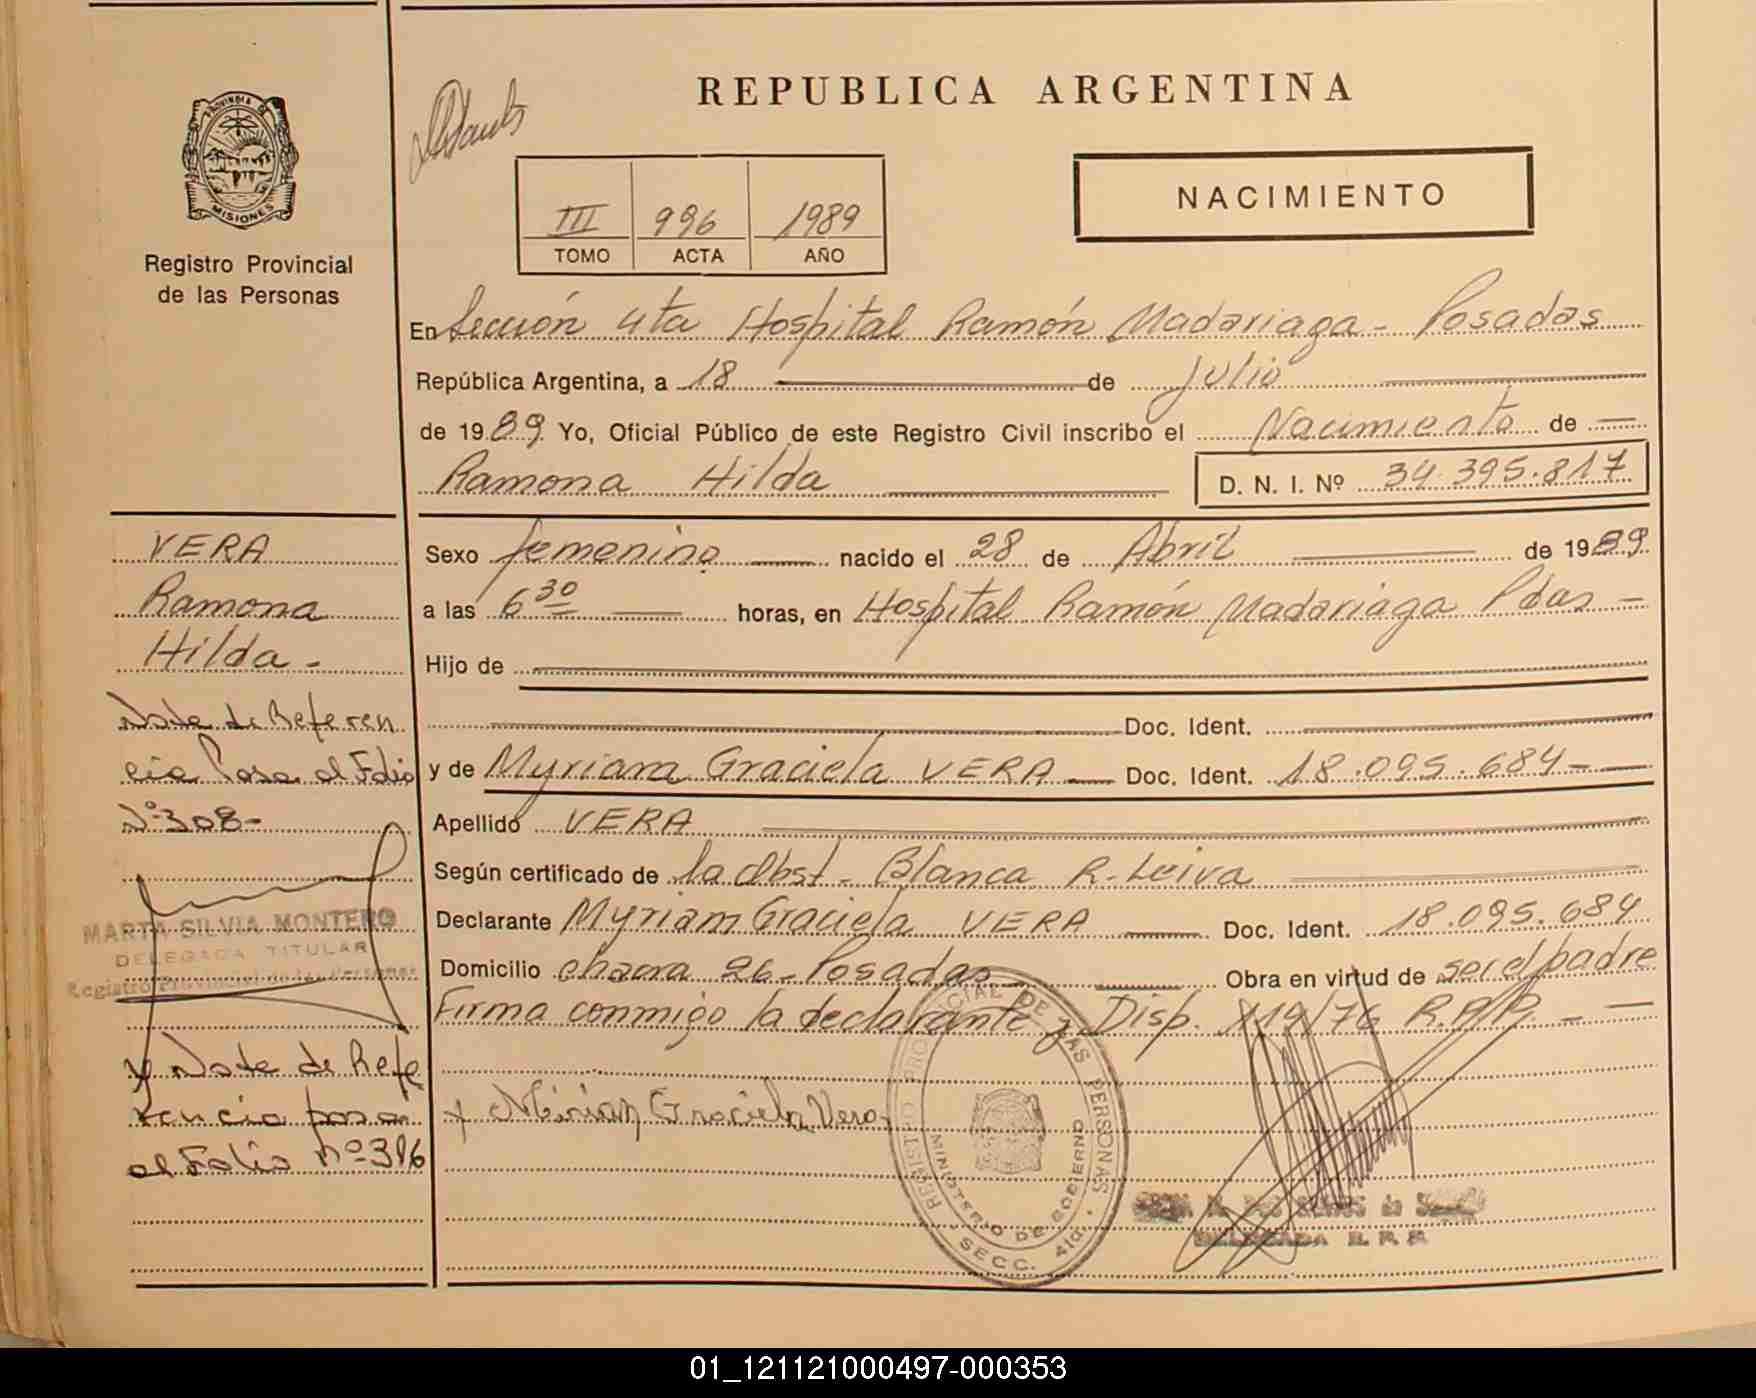 REPUBLICA ARGENTINA
PROVINCIA DE
MISIONES
Registro Provincial
de las Personas
NACIMIENTO
III 996 1989
TOMO ACTA AÑO
En Sección 4ta Hospital Ramón Madariaga - Posadas
República Argentina, a 18 de Julio
de 1989 Yo, Oficial Público de este Registro Civil inscribo el Nacimiento de —
Ramona Hilda D. N. I. Nº 34.395.817
VERA
Ramona
Hilda -
Sexo femenino nacido el 28 de Abril de 1989
a las 6 30 horas, en Hospital Ramón Madariaga Pdas -
Hijo de
Doc. Ident.
y de Myriam Graciela VERA Doc. Ident. 18.095.684 -
Apellido VERA
Según certificado de la Obst - Blanca R. Leiva
Declarante Myriam Graciela VERA Doc. Ident. 18.095.684
Domicilio chacra 26 - Posadas Obra en virtud de ser el padre
Firma conmigo la declarante y Disp. 119/76 R.P.P. - —
x Mirian Graciela Vera
Nota de Referen
cia Pasa al Folio
Nº 308 -
MARTA SILVIA MONTERO
DELEGADA TITULAR
Registro Provincial de las Personas
y Nota de Refe
rencia pasa
al Folio Nº 316
REGISTRO PROVINCIAL DE LAS PERSONAS
MINISTERIO DE GOBIERNO
SECC. 4ta.
DELEGADA R. P. P.
01_121121000497-000353